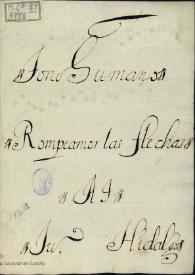 Mc. 81
3880
Tono Humano
Rompe amor las flechas
A 4
Ju.º Hidalgo
Biblioteca Nacional de España